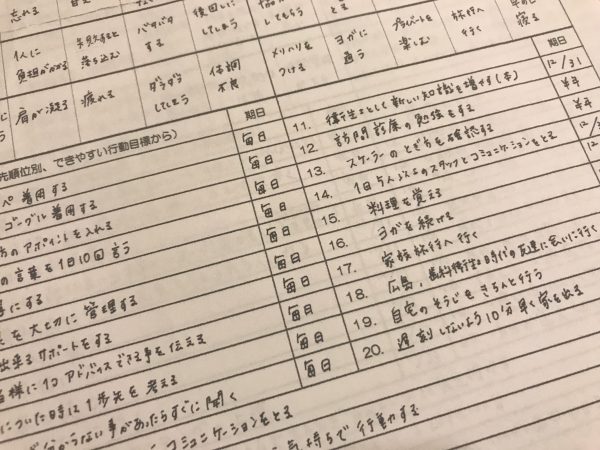 忘れる
バタバタする
後回しにしてしまう
寝る
人に負担がかかる
失敗すると落ち込む
メリハリをつける
ヨガに通う
プライベートを楽しむ
旅行へ行く
肩が凝る
疲れる
ダラダラしてしまう
体調不良
先順位別、できやすい行動目標から）
期日
期日
着用する
毎日
11. 衛生士として新しい知識を増やす(本)
12/31
ゴーグル着用する
毎日
12. 訪問診療の勉強をする
半年
のアポイントを入れる
毎日
13. スケーラーのとぎ方を確認する
半年
の言葉を1日10回言う
毎日
14. 1日5人以上のスタッフとコミュニケーションをとる
にする
毎日
15. 料理を覚える
を大切に管理する
毎日
16. ヨガを続ける
出来るサポートをする
毎日
17. 家族旅行へ行く
様に1つアドバイスできる事を伝える
毎日
18. 広島、歯科衛生士時代の友達に会いに行く
についた時は1歩先を考える
毎日
19. 自宅のそうじをきちんと行う
分からない事があったらすぐに聞く
毎日
20. 遅刻しないよう10分早く家を出る
コミュニケーションをとる
気持ちで行動する